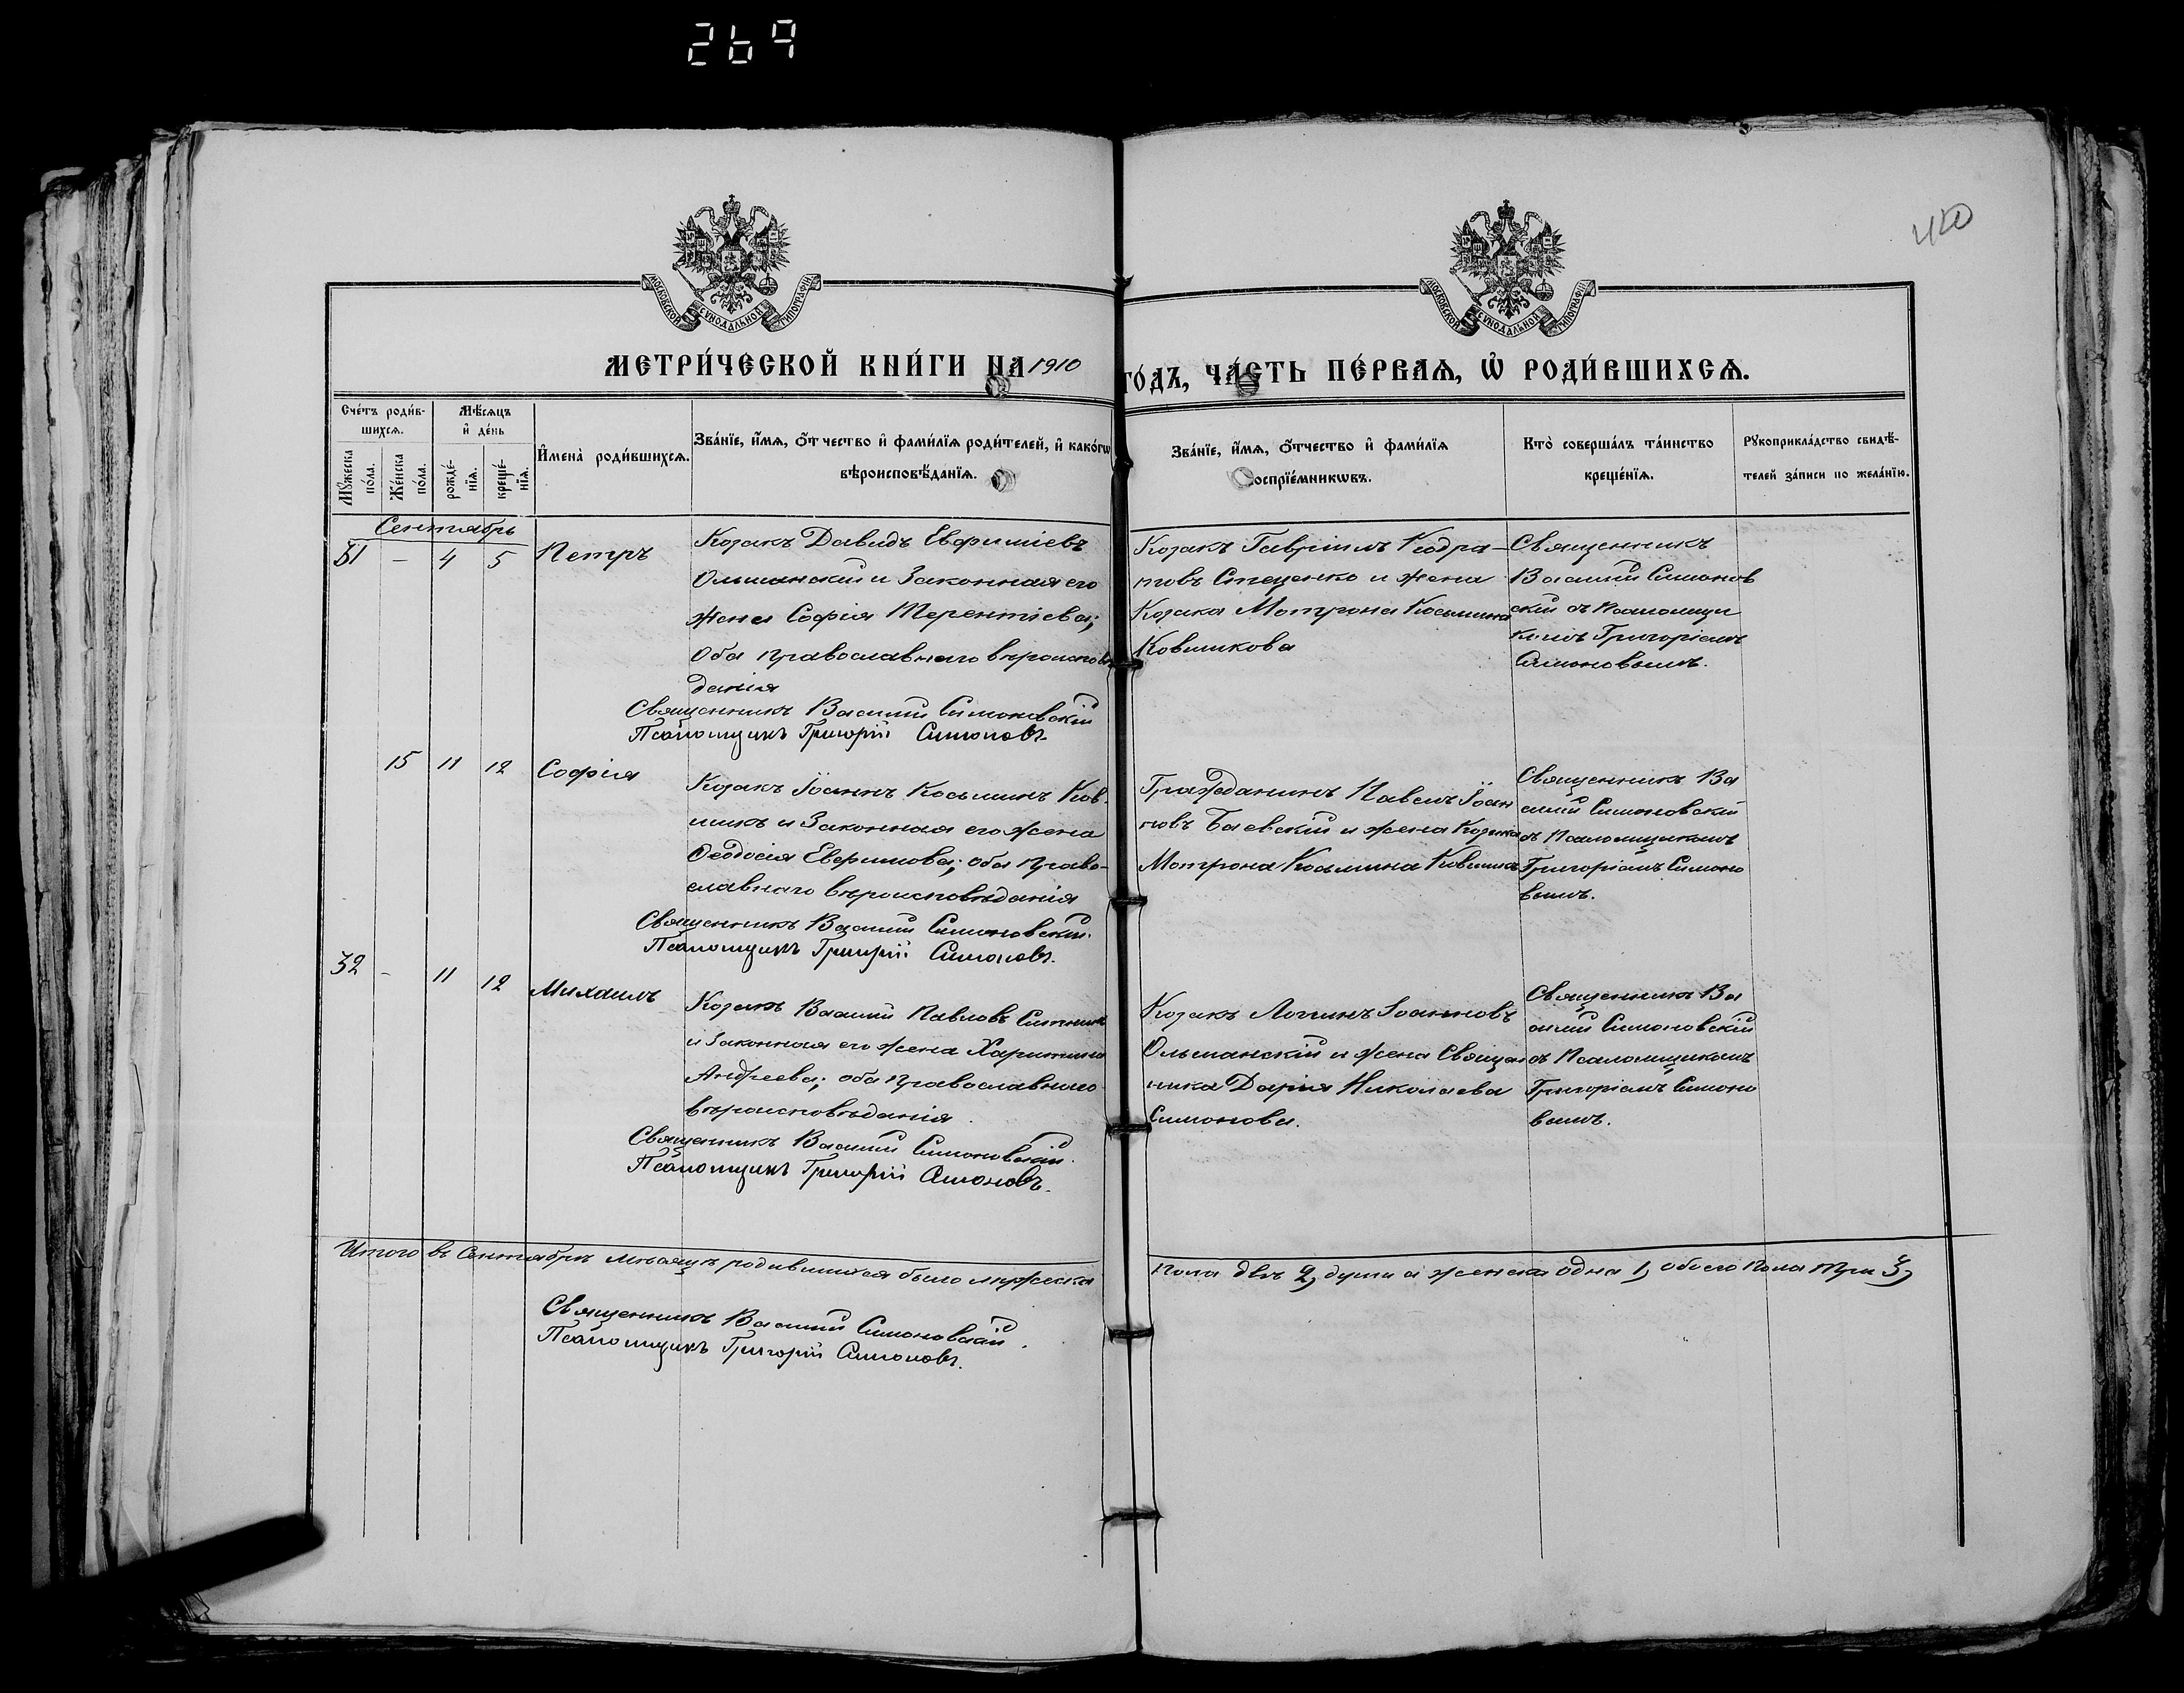 269
420
МОСКОВСКОЙ СУНОДАЛЬНОЙ ТИПОГРАФІИ
МОСКОВСКОЙ СУНОДАЛЬНОЙ ТИПОГРАФІИ
МЕТРИ́ЧЕСКОЙ КНИ́ГИ НА 1910 ГО́ДЪ, ЧА́СТЬ ПЕ́РВАѦ, Ѡ РОДИ́ВШИХСѦ.
Сче́тъ роди́в-
шихсѧ.
Мꙋжеска по́ла.
Же́нска по́ла.
Мѣ́сѧцъ
и҆ де́нь
рожде́-нїѧ.
креще́-нїѧ.
И҆мена̀ роди́вшихсѧ.
Зва́нїе, и҆́мѧ, ѻ҆́тчество и҆ фами́лїѧ роди́телей, и҆ како́гѡ
вѣроисповѣ́данїѧ.
Зва́нїе, и҆́мѧ, ѻ҆́тчество и҆ фами́лїѧ
воспрїе́мникѡвъ.
Кто̀ соверша́лъ та́инство
креще́нїѧ.
Рꙋкоприкла́дство свидѣ́-
телей за́писи по жела́нїю.
Сентябрь
31 - 4 5 Петръ
Козакъ Давидъ Евфиміевъ
Ольшанскій и Законная его
жена Софія Терентіева;
Оба православнаго вѣроисповѣ
данія
Священникъ Василій Симоновскій
Псаломщикъ Григорій Симоновъ.
Козакъ Гавріилъ Кодра-
товъ Стеценко и жена
Козака Мотрона Косьмина
Ковшикова
Священникъ
Василій Симонов
скій съ Псаломщи
комъ Григоріемъ
Симоновымъ.
15 11 12 Софія
Козакъ Іоаннъ Косьминъ Ков-
шикъ и Законная его жена
Ѳеодосія Евфимова; оба право-
славнаго вѣроисповѣданія
Священникъ Василій Симоновскій.
Псаломщикъ Григорій Симоновъ.
Гражданинъ Павелъ Іоан
новъ Баевскій и жена Козака
Мотрона Косьмина Ковшикъ
Священникъ Ва
силій Симоновскій
съ Псаломщикомъ
Григоріемъ Симоно
вымъ.
32 - 11 12 Михаилъ
Козакъ Василій Павловъ Ситникъ
и Законная его жена Харитина
Андреева; оба православнаго
вѣроисповѣданія.
Священникъ Василій Симоновскій.
Псаломщикъ Григорій Симоновъ.
Козакъ Логинъ Іоанновъ
Ольшанскій и жена Священ
ника Дарія Николаева
Симонова.
Священникъ Ва
силій Симоновскій
съ Псаломщикомъ
Григоріемъ Симоно
вымъ.
Итого въ Сентябрѣ мѣсяцѣ родившихся было мужеска пола двѣ 2, души а женска одна 1, обоего пола три 3,
Священникъ Василій Симоновскій.
Псаломщикъ Григорій Симоновъ.